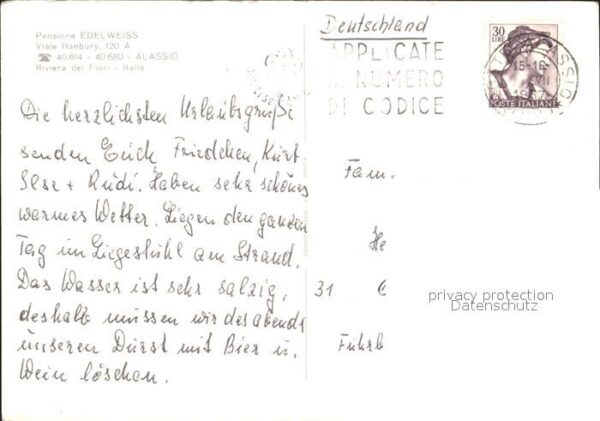 Pensione EDELWEISS
Viale Hanbury, 120 A
☎ 40.614 - 40.680 - ALASSIO
Riviera dei Fiori - Italia
Die herzlichsten Urlaubsgrüße
senden Euch Friedchen, Kurt
Ilse + Rudi. Haben sehr schönes
warmes Wetter. Liegen den ganzen
Tag im Liegestühl am Strand.
Das Wasser ist sehr salzig,
deshalb müssen wir des abends
unseren Durst mit Bier u.
Wein löschen.
Deutschland
APPLICATE
NUMERO
DI CODICE
15-16
30
LIRE
POSTE ITALIANE
Fam.
He
31
Fuhrb
privacy protection
Datenschutz